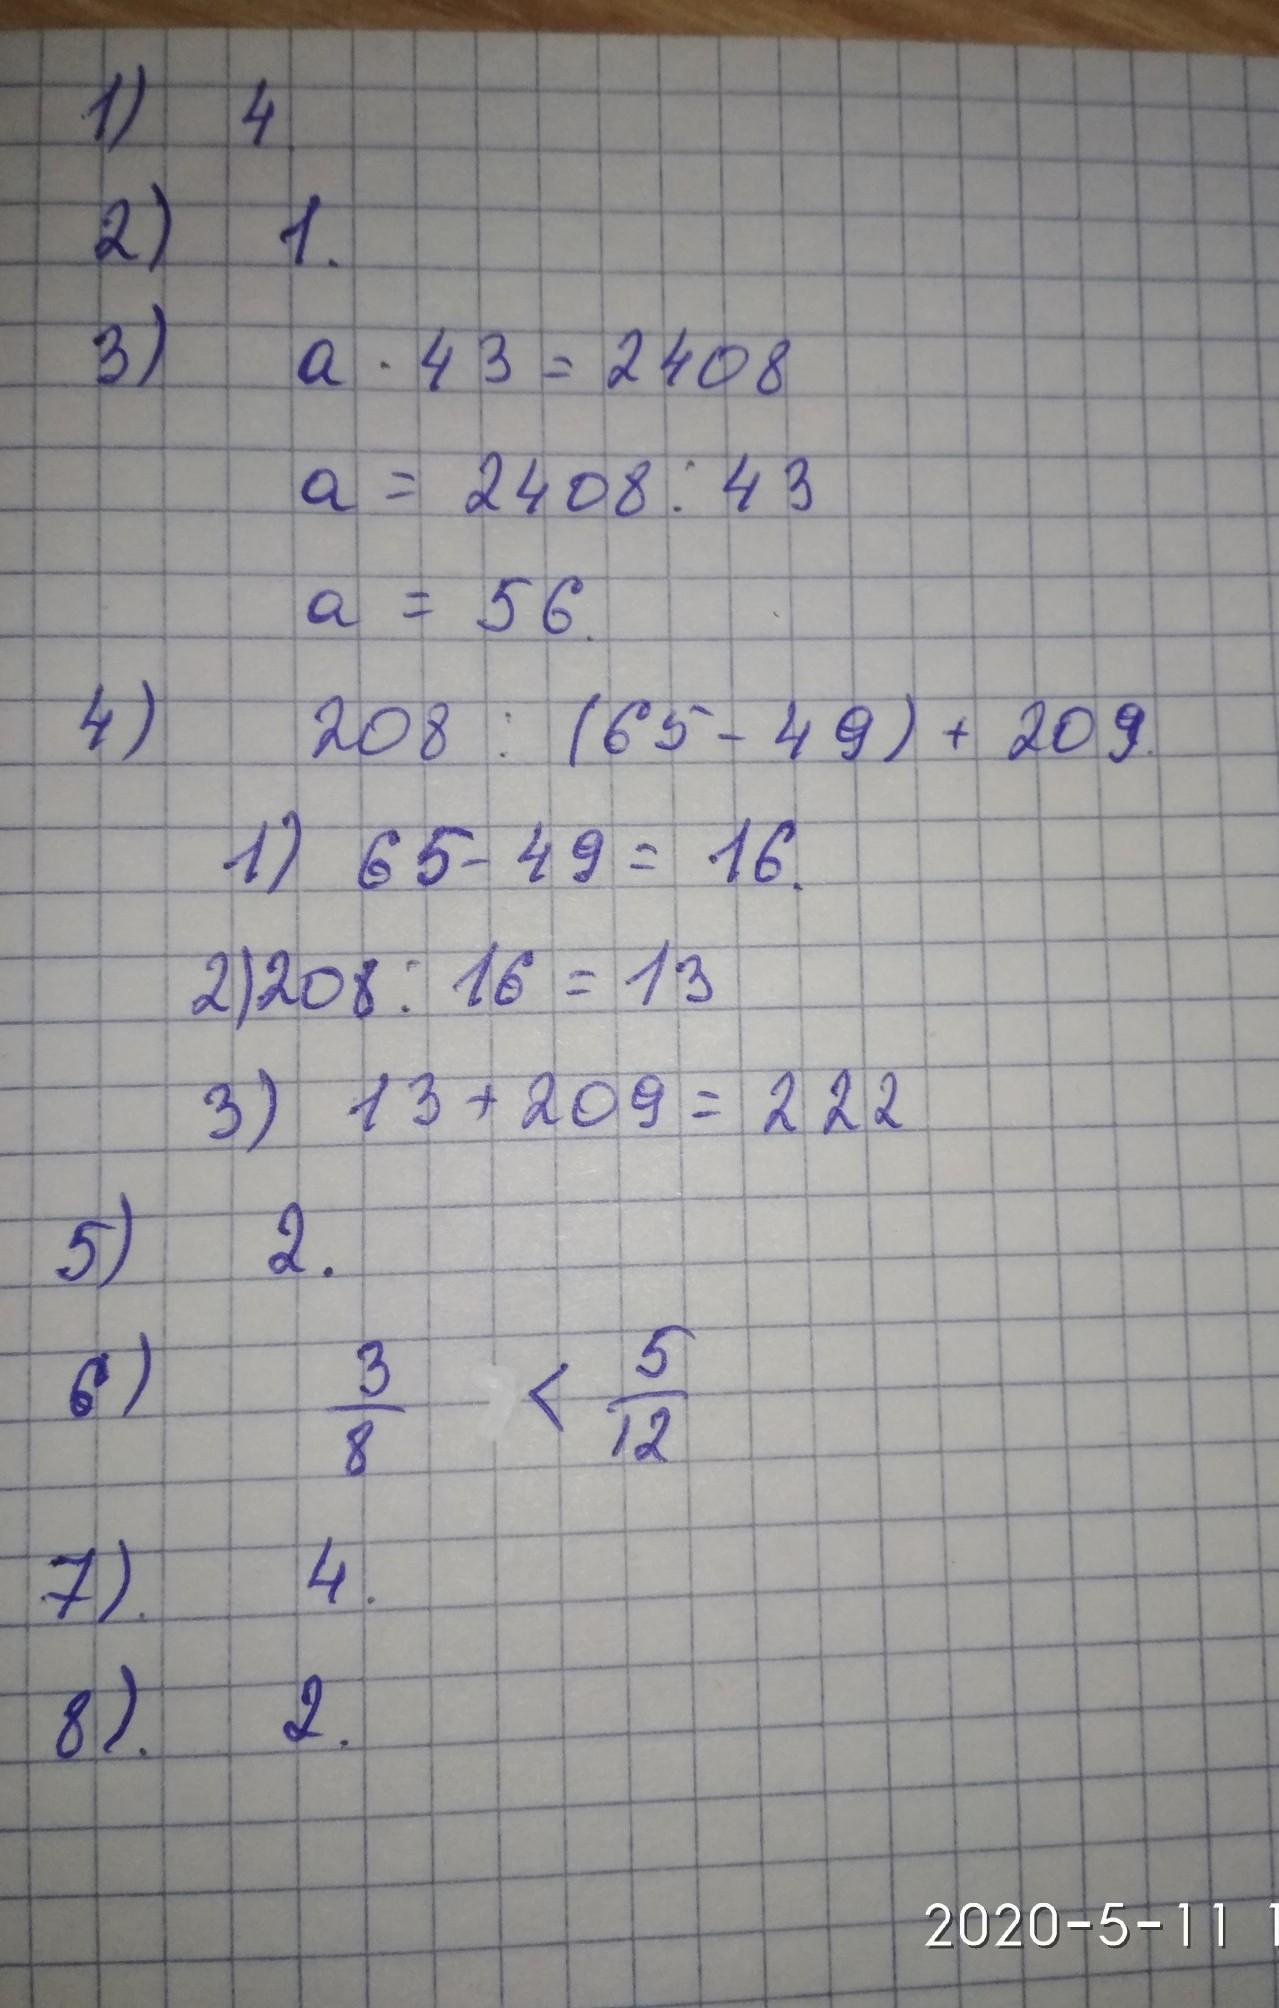 1) 4.
2) 1.
3) a · 43 = 2408
a = 2408 : 43
a = 56.
4) 208 : (65 - 49) + 209.
1) 65 - 49 = 16.
2) 208 : 16 = 13
3) 13 + 209 = 222
5) 2.
6) 3/8 < 5/12
7). 4.
8). 2.
2020-5-11 1